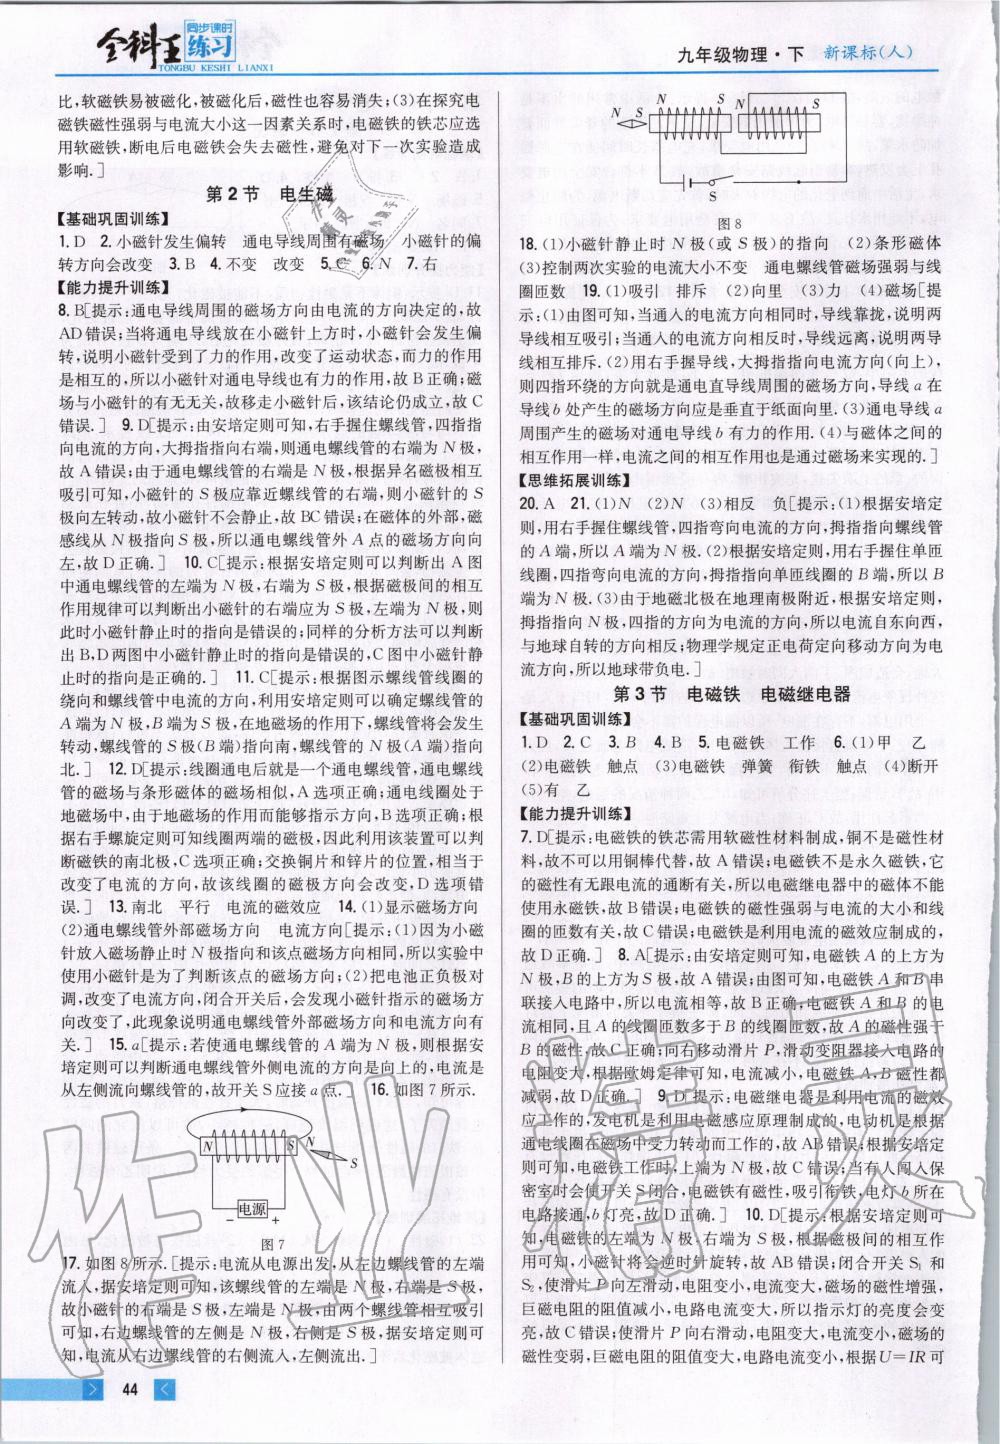 全科王 同步课时练习
TONGBU KESHI LIANXI
九年级物理·下 新课标(人)
比,软磁铁易被磁化,被磁化后,磁性也容易消失;(3)在探究电
磁铁磁性强弱与电流大小这一因素关系时,电磁铁的铁芯应选
用软磁铁,断电后电磁铁会失去磁性,避免对下一次实验造成
影响.]
第2节 电生磁
【基础巩固训练】
1.D 2.小磁针发生偏转 通电导线周围有磁场 小磁针的偏
转方向会改变 3.B 4.不变 改变 5.C 6.N 7.右
【能力提升训练】
8.B[提示:通电导线周围的磁场方向由电流的方向决定的,故
AD错误;当将通电导线放在小磁针上方时,小磁针会发生偏
转,说明小磁针受到了力的作用,改变了运动状态,而力的作用
是相互的,所以小磁针对通电导线也有力的作用,故B正确;磁
场与小磁针的有无无关,故移走小磁针后,该结论仍成立,故C
错误.] 9.D[提示:由安培定则可知,右手握住螺线管,四指指
向电流的方向,大拇指指向右端,则通电螺线管的右端为N极,
故A错误;由于通电螺线管的右端是N极,根据异名磁极相互
吸引可知,小磁针的S极应靠近螺线管的右端,则小磁针的S
极向左转动,故小磁针不会静止,故BC错误;在磁体的外部,磁
感线从N极指向S极,所以通电螺线管外A点的磁场方向向
左,故D正确.] 10.C[提示:根据安培定则可以判断出A图
中通电螺线管的左端为N极,右端为S极,根据磁极间的相互
作用规律可以判断出小磁针的右端应为S极,左端为N极,则
此时小磁针静止时的指向是错误的;同样的分析方法可以判断
出B,D两图中小磁针静止时的指向是错误的,C图中小磁针静
止时的指向是正确的.] 11.C[提示:根据图示螺线管线圈的
绕向和螺线管中电流的方向,利用安培定则可以确定螺线管的
A端为N极,B端为S极,在地磁场的作用下,螺线管将会发生
转动,螺线管的S极(B端)指向南,螺线管的N极(A端)指向
北.] 12.D[提示:线圈通电后就是一个通电螺线管,通电螺线
管的磁场与条形磁体的磁场相似,A选项正确;通电线圈处于
地磁场中,由于地磁场的作用而能够指示方向,B选项正确;根
据右手螺旋定则可知线圈两端的磁极,因此利用该装置可以判
断磁铁的南北极,C选项正确;交换铜片和锌片的位置,相当于
改变了电流的方向,故该线圈的磁极方向会改变,D选项错
误.] 13.南北 平行 电流的磁效应 14.(1)显示磁场方向
(2)通电螺线管外部磁场方向 电流方向[提示:(1)因为小磁
针放入磁场静止时N极指向和该点磁场方向相同,所以实验中
使用小磁针是为了判断该点的磁场方向;(2)把电池正负极对
调,改变了电流方向,闭合开关后,会发现小磁针指示的磁场方
向改变了,此现象说明通电螺线管外部磁场方向和电流方向有
关.] 15.a[提示:若使通电螺线管的A端为N极,则根据安
培定则可以判断通电螺线管外侧电流的方向是向上的,电流是
从左侧流向螺线管的,故开关S应接a点.] 16.如图7所示.
N S N S
电源
- +
图7
17.如图8所示.[提示:电流从电源出发,从左边螺线管的左端
流入,据安培定则可知,该螺线管的左端是N极,右端是S极,
故小磁针的右端是S极,左端是N极;由两个螺线管相互吸引
可知,右边螺线管的左侧是N极,右侧是S极,据安培定则可
知,电流从右边螺线管的右侧流入,左侧流出.]
N S N S
N S
图8
18.(1)小磁针静止时N极(或S极)的指向 (2)条形磁体
(3)控制两次实验的电流大小不变 通电螺线管磁场强弱与线
圈匝数 19.(1)吸引 排斥 (2)向里 (3)力 (4)磁场[提
示:(1)由图可知,当通入的电流方向相同时,导线靠拢,说明两
导线相互吸引;当通入的电流方向相反时,导线远离,说明两导
线相互排斥.(2)用右手握导线,大拇指指向电流方向(向上),
则四指环绕的方向就是通电直导线周围的磁场方向,导线a在
导线b处产生的磁场方向应是垂直于纸面向里.(3)通电导线a
周围产生的磁场对通电导线b有力的作用.(4)与磁体之间的
相互作用一样,电流之间的相互作用也是通过磁场来实现的.]
【思维拓展训练】
20.A 21.(1)N (2)N (3)相反 负[提示:(1)根据安培定
则,用右手握住螺线管,四指弯向电流的方向,拇指指向螺线管
的A端,所以A端为N极.(2)根据安培定则,用右手握住单匝
线圈,四指弯向电流的方向,拇指指向单匝线圈的B端,所以B
端为N极.(3)由于地磁北极在地理南极附近,根据安培定则,
拇指指向N极,四指的方向为电流的方向,所以电流自东向西,
与地球自转的方向相反;物理学规定正电荷定向移动方向为电
流方向,所以地球带负电.]
第3节 电磁铁 电磁继电器
【基础巩固训练】
1.D 2.C 3.B 4.B 5.电磁铁 工作 6.(1)甲 乙
(2)电磁铁 触点 (3)电磁铁 弹簧 衔铁 触点 (4)断开
(5)有 乙
【能力提升训练】
7.D[提示:电磁铁的铁芯需用软磁性材料制成,铜不是磁性材
料,故不可以用铜棒代替,故A错误;电磁铁不是永久磁铁,它
的磁性有无跟电流的通断有关,所以电磁继电器中的磁体不能
使用永磁铁,故B错误;电磁铁的磁性强弱与电流的大小和线
圈的匝数有关,故C错误;电磁铁是利用电流的磁效应制成的,
故D正确.] 8.A[提示:由安培定则可知,电磁铁A的上方为
N极,B的上方为S极,故A错误;由图可知,电磁铁A和B串
联接入电路中,所以电流相等,故B正确;电磁铁A和B的电
流相同,且A的线圈匝数多于B的线圈匝数,故A的磁性强于
B的磁性,故C正确;向右移动滑片P,滑动变阻器接入电路的
电阻变大,根据欧姆定律可知,电流减小,电磁铁A、B磁性都
减弱,故D正确.] 9.D[提示:电磁继电器是利用电流的磁效
应工作的,发电机是利用电磁感应原理制成的,电动机是根据
通电线圈在磁场中受力转动而工作的,故AB错误;根据安培定
则可知,电磁铁工作时,上端为N极,故C错误;当有人闯入保
密室时会使开关S闭合,电磁铁有磁性,吸引衔铁,电灯b所在
电路接通,b灯亮,故D正确.] 10.D[提示:根据安培定则可
知,电磁铁的左端为N极,右端为S极,根据磁极间的相互作
用可知,小磁针将会逆时针旋转,故AB错误;闭合开关S₁和
S₂,使滑片P向左滑动,电阻变小,电流变大,磁场的磁性增强,
巨磁电阻的阻值减小,电路电流变大,所以指示灯的亮度会变
亮,故C错误;使滑片P向右滑动,电阻变大,电流变小,磁场的
磁性变弱,巨磁电阻的阻值变大,电路电流变小,根据U=IR可
44
作业精灵